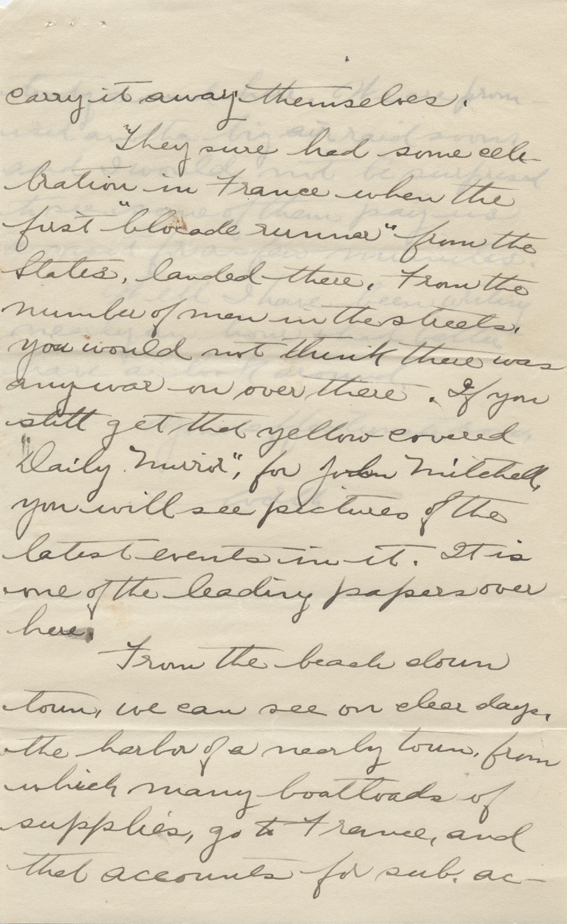 carry it away themselves.
They sure had some cele-
bration in France when the
first "blocade runner" from the
States, landed there. From the
number of men in the streets,
you would not think there was
any war on over there. If you
still get that yellow covered
"Daily Mirror", for John Mitchell,
you will see pictures of the
latest events in it. It is
one of the leading papers over
here.
From the beach down
town, we can see on clear days,
the harbor of a nearby town, from
which many boatloads of
supplies, go to France, and
that accounts for sub. ac-